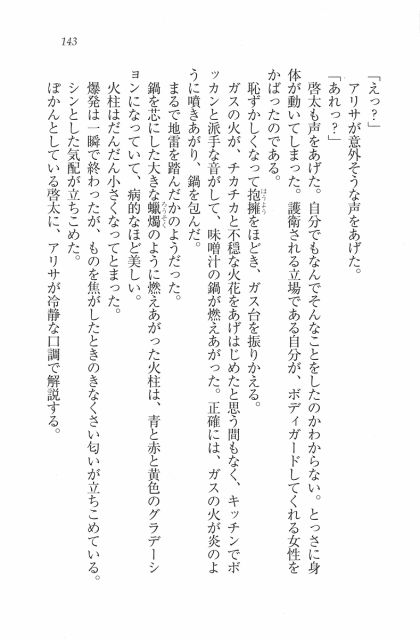 143
「えっ？」
アリサが意外そうな声をあげた。
「あれっ？」
啓太も声をあげた。自分でもなんでそんなことをしたのかわからない。とっさに身
体が動いてしまった。護衛される立場である自分が、ボディガードしてくれる女性を
かばったのである。
恥ずかしくなって抱擁をほどき、ガス台を振りかえる。
ガスの火が、チカチカと不穏な火花をあげはじめたと思う間もなく、キッチンでボ
ッカンと派手な音がして、味噌汁の鍋が燃えあがった。正確には、ガスの火が炎のよ
うに噴きあがり、鍋を包んだ。
まるで地雷を踏んだかのようだった。
鍋を芯にした大きな蠟燭のように燃えあがった火柱は、青と赤と黄色のグラデーシ
ョンになっていて、病的なほど美しい。
火柱はだんだん小さくなってとまった。
爆発は一瞬で終わったが、ものを焦がしたときのきなくさい匂いが立ちこめている。
シンとした気配が立ちこめた。
ぽかんとしている啓太に、アリサが冷静な口調で解説する。